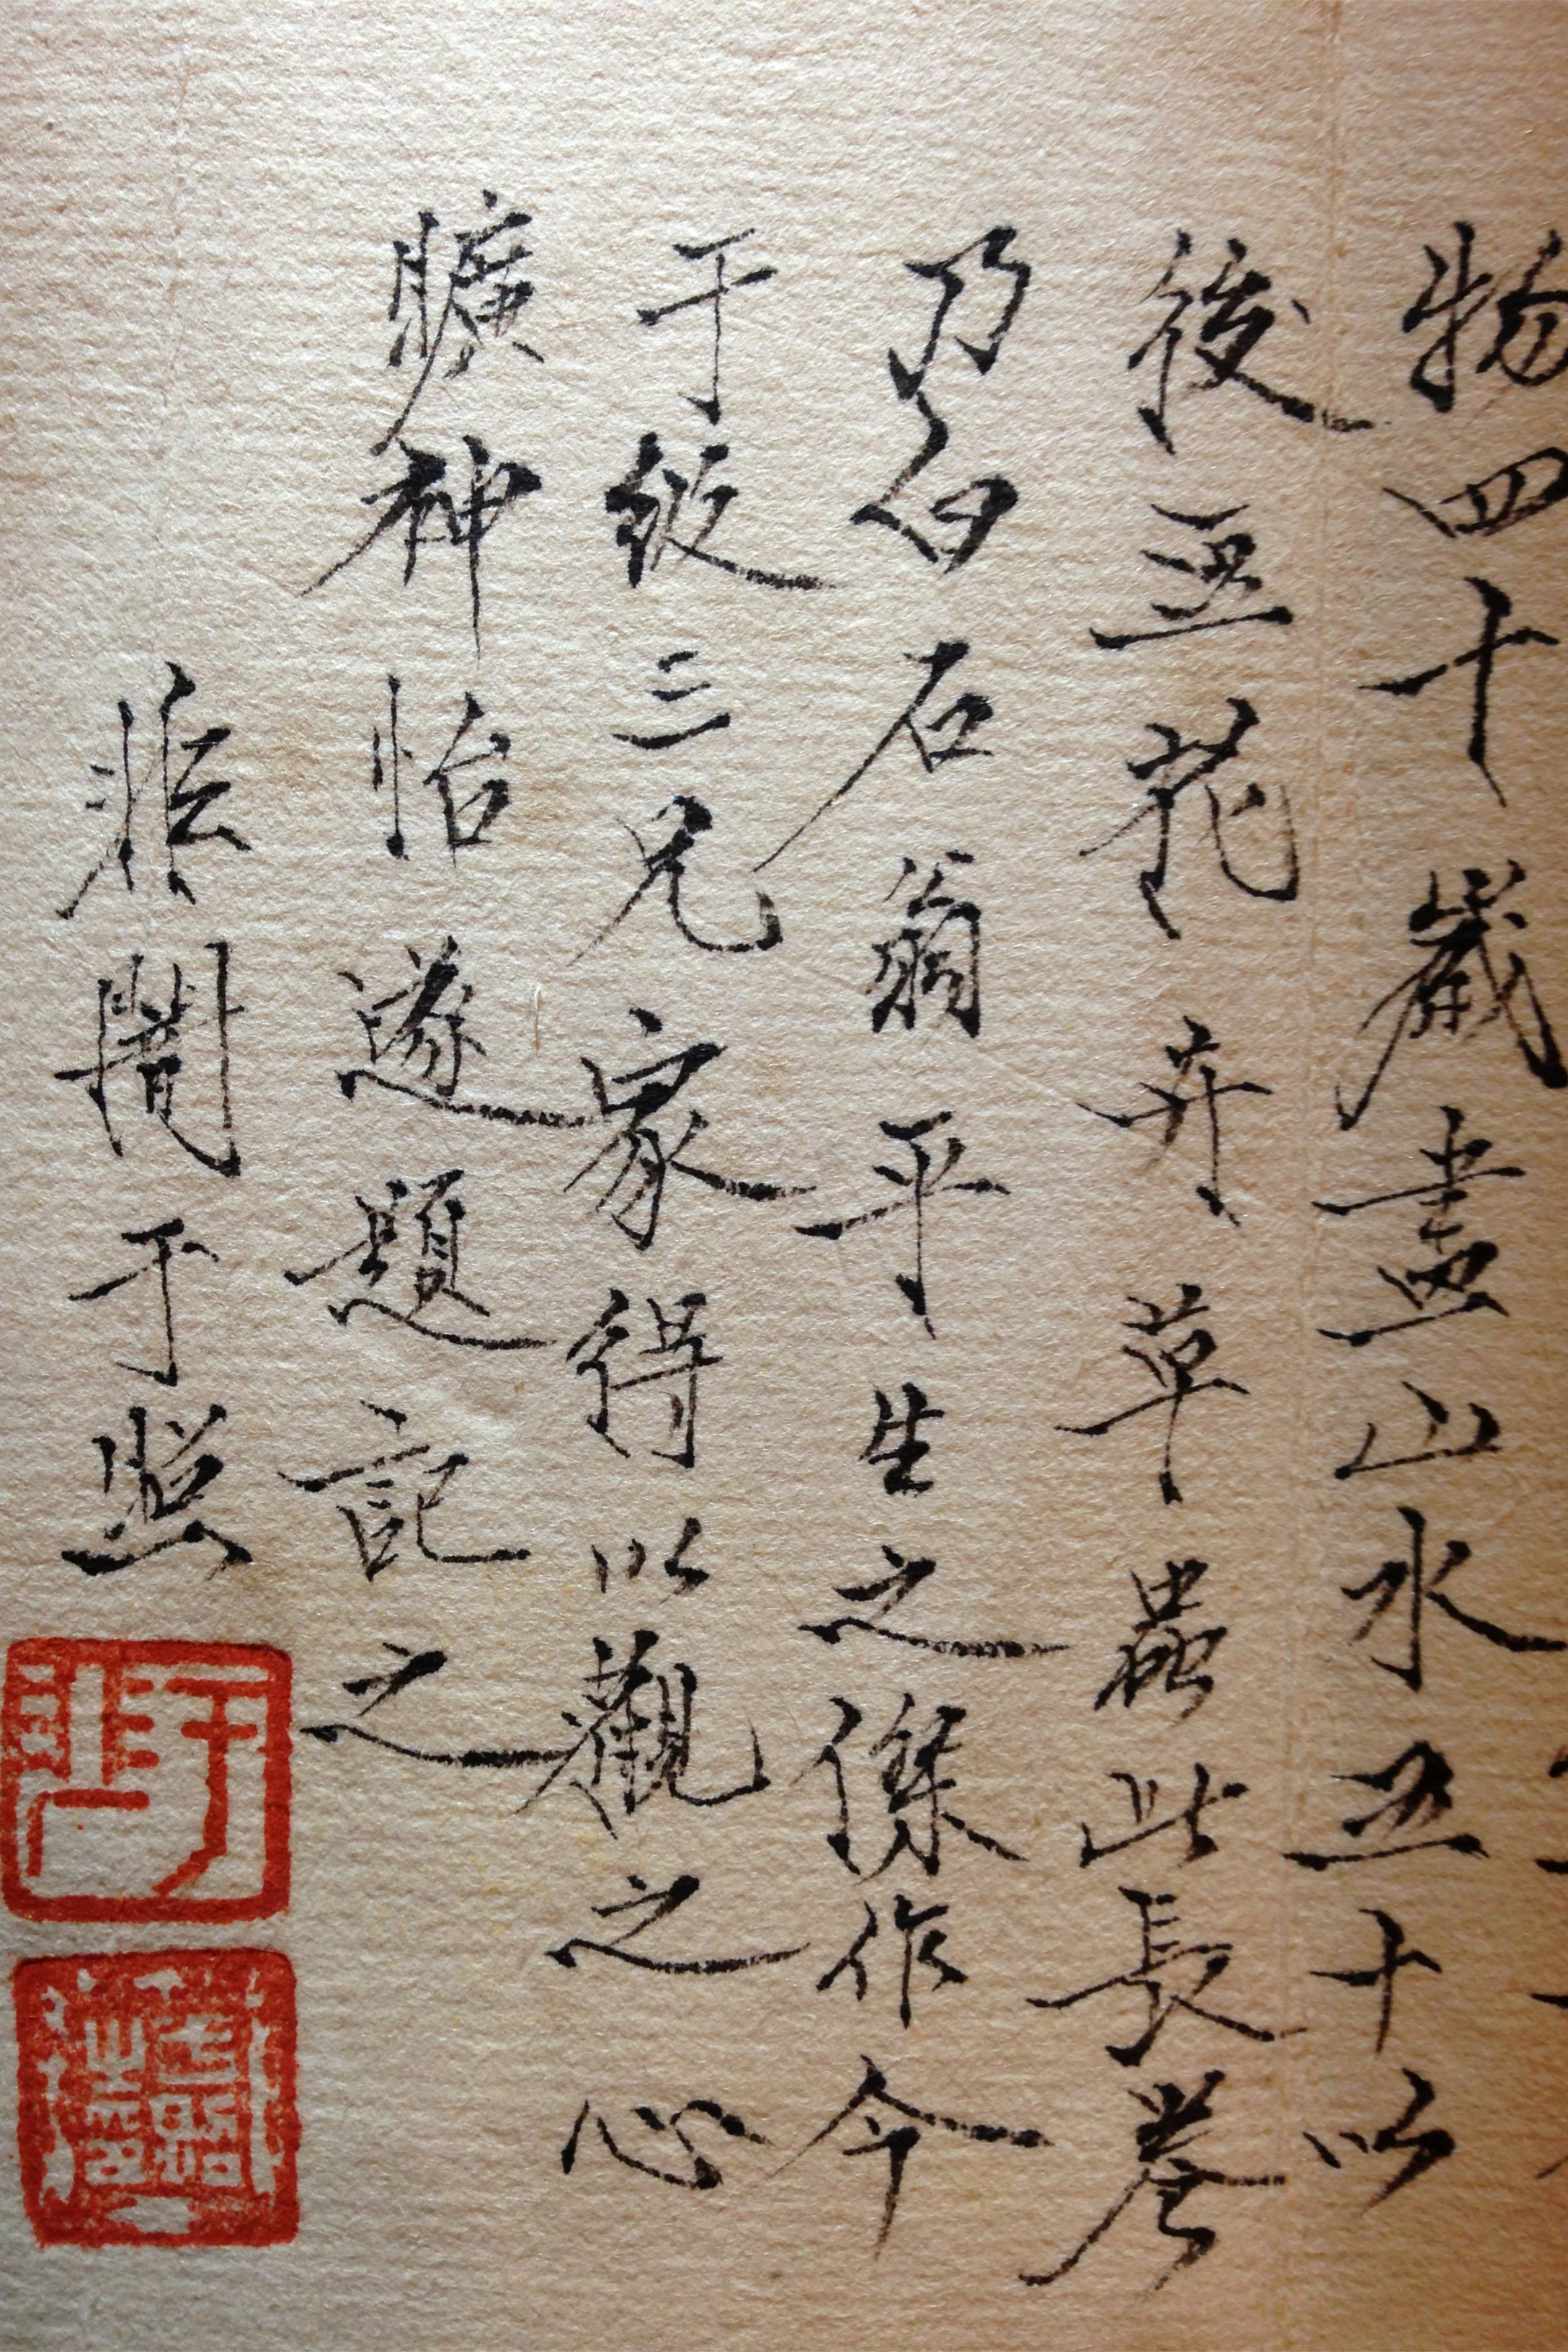 物四十歲畫山水五十以
後画花卉草蟲此長卷
乃白石翁平生之傑作今
于級三兄家得以觀之心
曠神怡遂題記之
非闇于照
于非厂